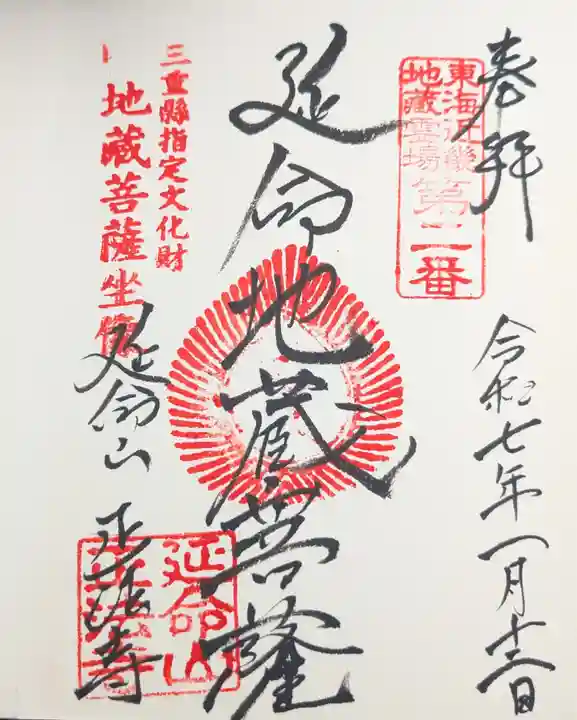 奉拝
東海近畿
地蔵霊場
第二番
令和七年一月十三日
延命地蔵菩薩
三重縣指定文化財
地蔵菩薩坐像
延命山
正法寺
延命山
正法寺